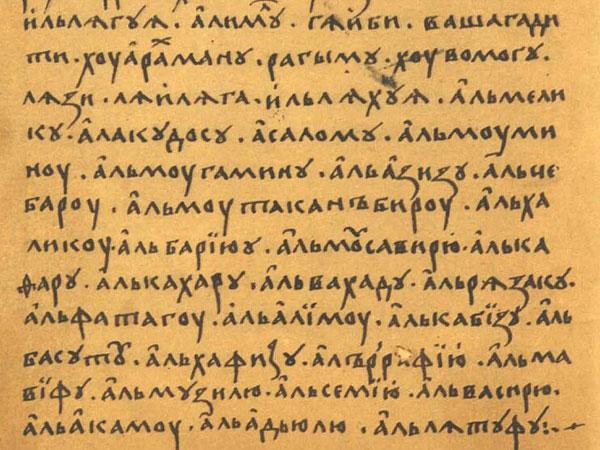 и҆льлѧгуѧ . а҆лиму . гаиби . вашагади
ти . хоуа҆рахману . рагыму . хоувомогу .
лѧзи . лѧйлѧга . и҆льлѧхуѧ . а҆льмели
ку . а҆лакудосу . а҆салому . а҆льмоуми
ноу . а҆льмоугамину . а҆льа҆зизу . а҆льче
бароу . а҆льмоутаканъбироу . а҆льха
ликоу . а҆льбарїюу . а҆льмꙋсавирю . а҆лька
фару . а҆лькахару . а҆львахаду . а҆льрѧзаку .
а҆льфатагоу . а҆льа҆лїмоу . а҆лькабїзу . а҆ль
басутꙋ . а҆льхафизу . а҆лърафїю . а҆льма
вїфу . а҆льмузилю . а҆льсемїю . а҆львасирю .
а҆льа҆камоу . а҆льа҆дьюлю . а҆льлѧтуфу :